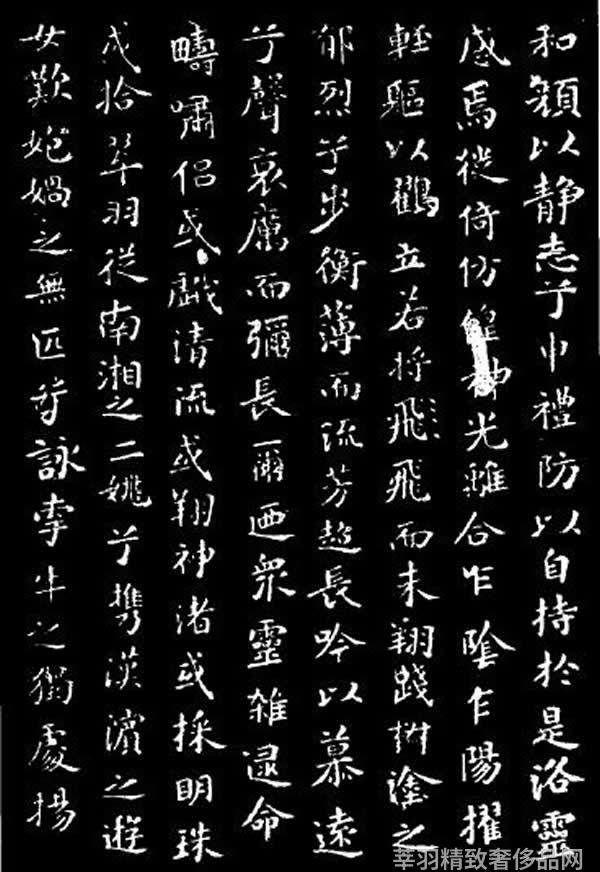 和顏以静志兮申禮防以自持於是洛靈
感焉徙倚仿徨神光離合乍陰乍陽擢
輕軀以鶴立若將飛飛而未翔踐椒塗之
郁烈兮步衡薄而流芳超長吟以慕遠
兮聲哀厲而彌長爾迺衆靈雜遝命
疇嘯侶或戲清流或翔神渚或採明珠
或拾翠羽從南湘之二姚兮携漢濱之遊
女歎匏媧之無匹兮詠牽牛之獨處揚
莘羽精致奢侈品网